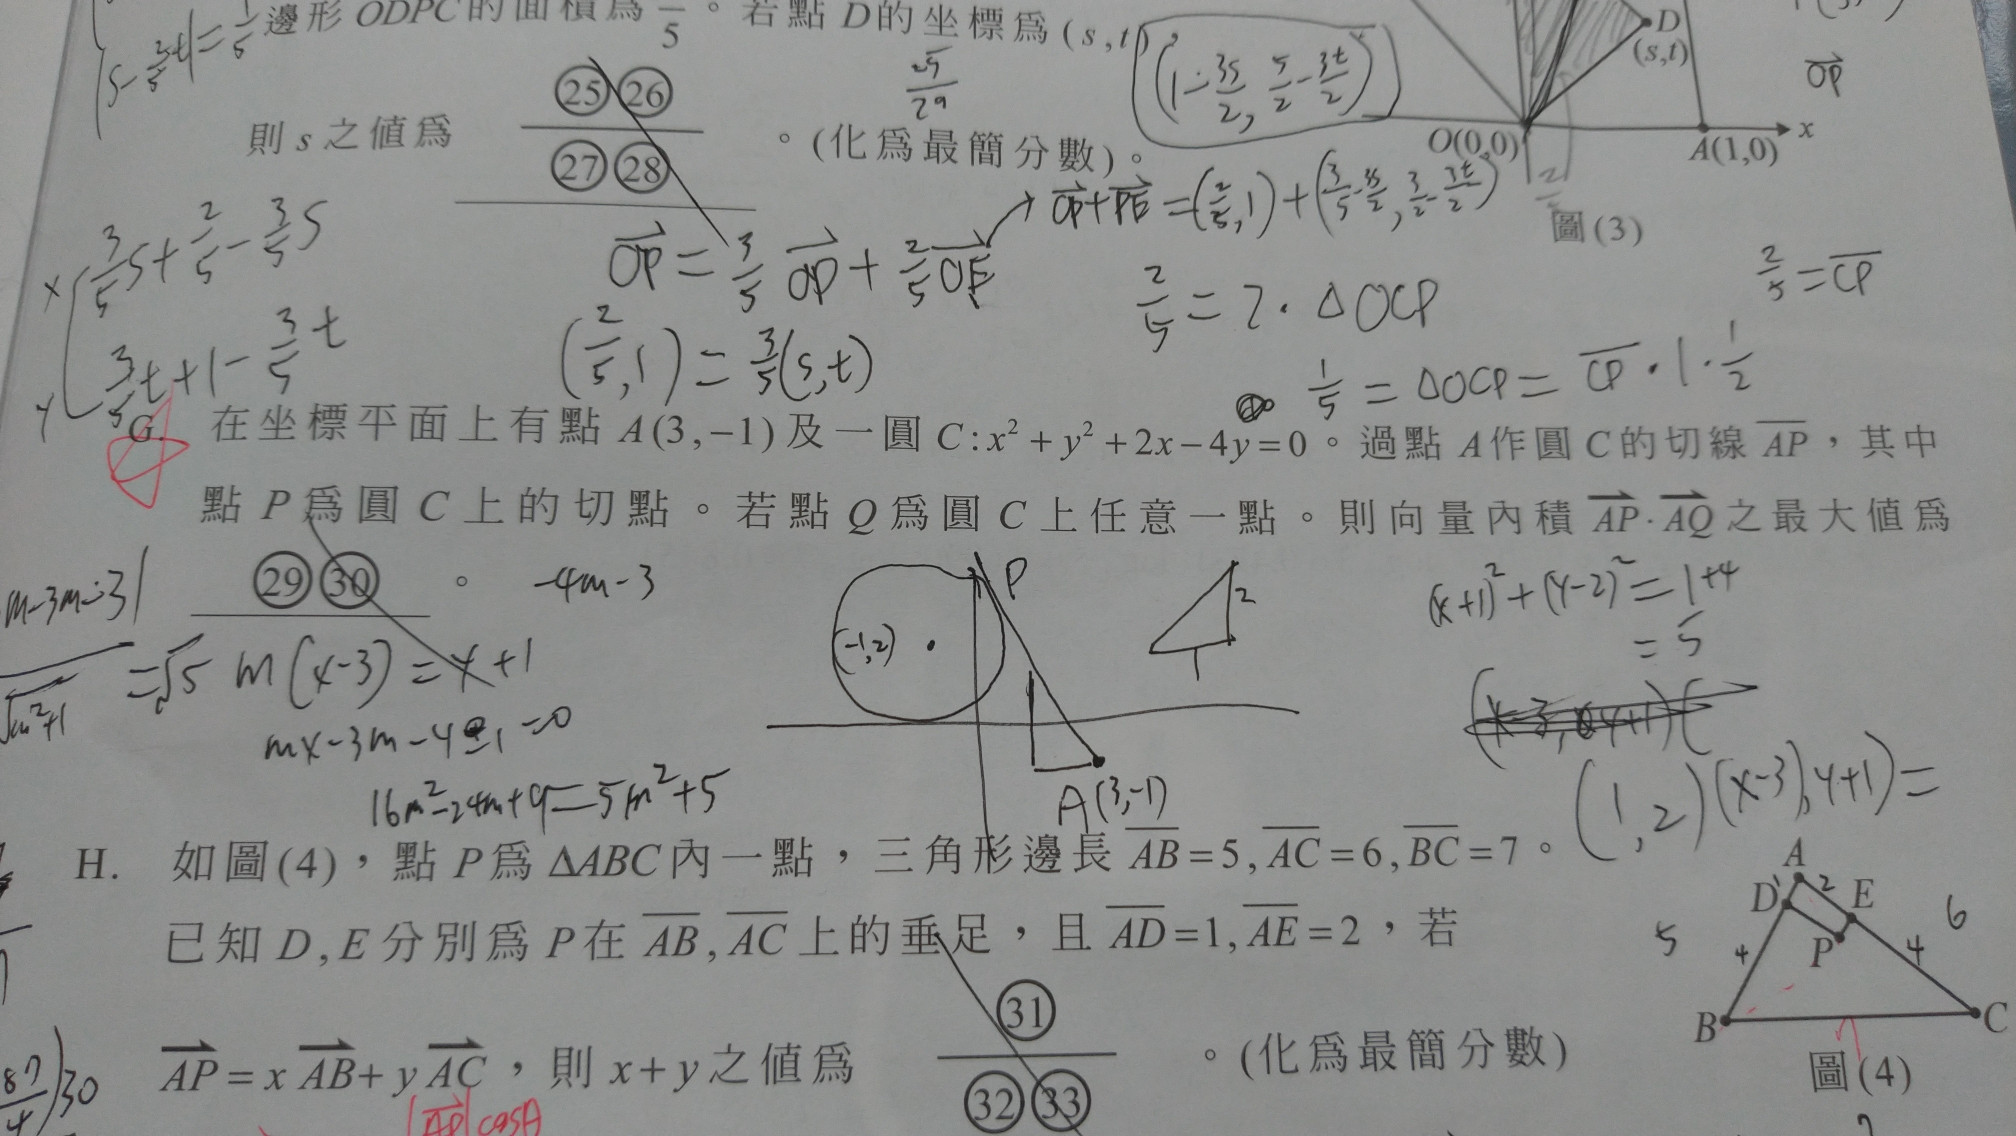 邊形 ODPC 的面積為 /5。若點 D 的坐標為 (s,t),
(1-3s/2, 5/2-3t/2)
D
(s,t)
OP
25/29
則 s 之值為 ㉕㉖/㉗㉘。(化為最簡分數)。
O(0,0) A(1,0) x
圖(3)
OP+PE=(2/5,1)+(3/5-3s/2, 3/2-3t/2)
x 3/5s+2/5-3/5s
y 3/5t+1-3/5t
(2/5,1)=3/5(s,t)
2/5=2·△OCP
2/5=CP
1/5=△OCP=CP·1·1/2
G. 在坐標平面上有點 A(3,-1) 及一圓 C:x²+y²+2x-4y=0。過點 A 作圓 C 的切線 AP,其中
點 P 為圓 C 上的切點。若點 Q 為圓 C 上任意一點。則向量內積 AP·AQ 之最大值為
㉙㉚。
-4m-3
P
(-1,2)
2
1
(x+1)²+(y-2)²=1+4
=5
√m²+1
=√5
m(x-3)=y+1
mx-3m-y-1=0
16m²-24m+9=5m²+5
A(3,-1)
(1,2)(x-3,y+1)=
H. 如圖(4),點 P 為 ΔABC 內一點,三角形邊長 AB=5,AC=6,BC=7。
已知 D,E 分別為 P 在 AB,AC 上的垂足,且 AD=1,AE=2,若
AP=xAB+yAC,則 x+y 之值為 ㉛/㉜㉝。(化為最簡分數)
A
D 2 E
5 4 P 4 6
B C
圖(4)
|AP|cosA